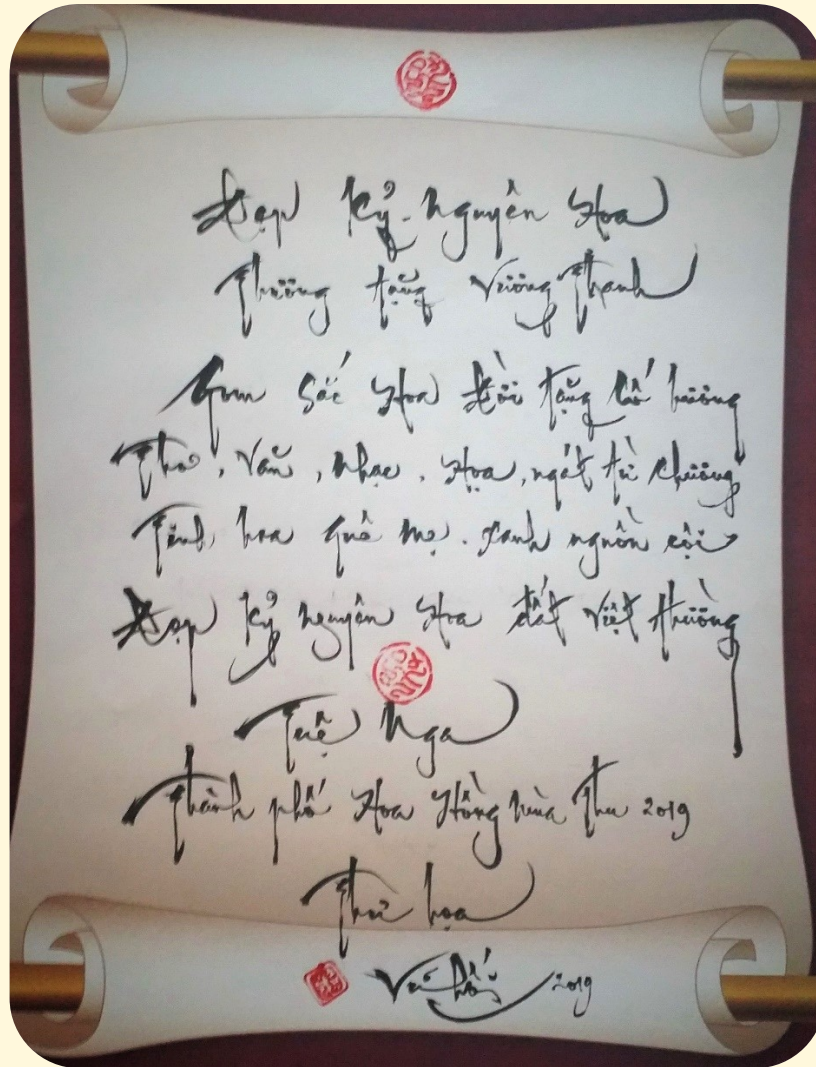 Đẹp Kỷ Nguyên Hoa
Thương tặng Vương Thanh
Gom Sắc Hoa Đời tặng hương
Thơ, Văn, Nhạc, Họa, ngát từ chương
Tinh hoa quê mẹ. Xanh nguồn cội
Đẹp Kỷ nguyên Hoa đất Việt thường
Tuệ Nga
Thành phố Hoa Hồng Mùa Thu 2019
Thư họa
Vũ Hối 2019